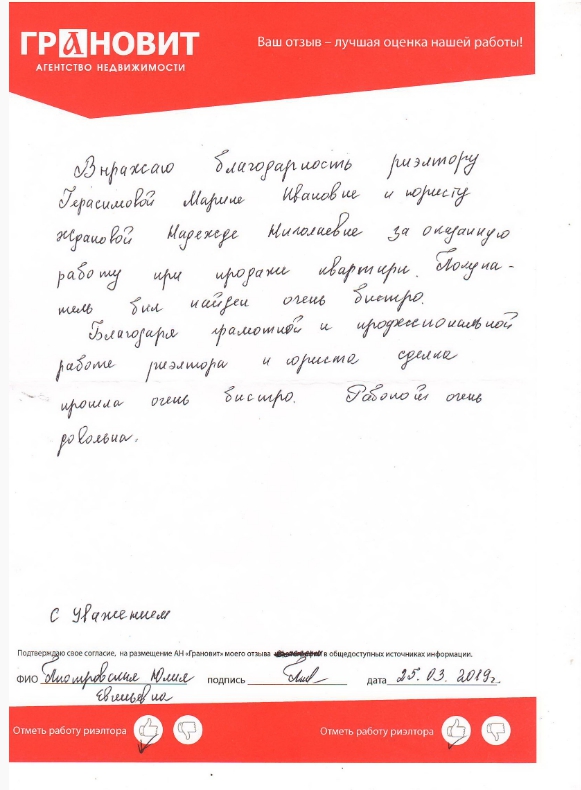 ГРАНОВИТ
АГЕНТСТВО НЕДВИЖИМОСТИ
Ваш отзыв – лучшая оценка нашей работы!
Выражаю благодарность риэлтору
Герасимовой Марине Ивановне и юристу
Ждановой Надежде Николаевне за оказанную
работу при продаже квартиры. Покупа-
тель был найден очень быстро.
Благодаря грамотной и профессиональной
работе риэлтора и юриста сделка
прошла очень быстро. Работой очень
довольна.
С Уважением
Подтверждаю свое согласие, на размещение АН «Грановит» моего отзыва в общедоступных источниках информации.
ФИО Пиотровская Юлия подпись дата 25.03.2019г.
Евгеньевна
Отметь работу риэлтора Отметь работу риэлтора